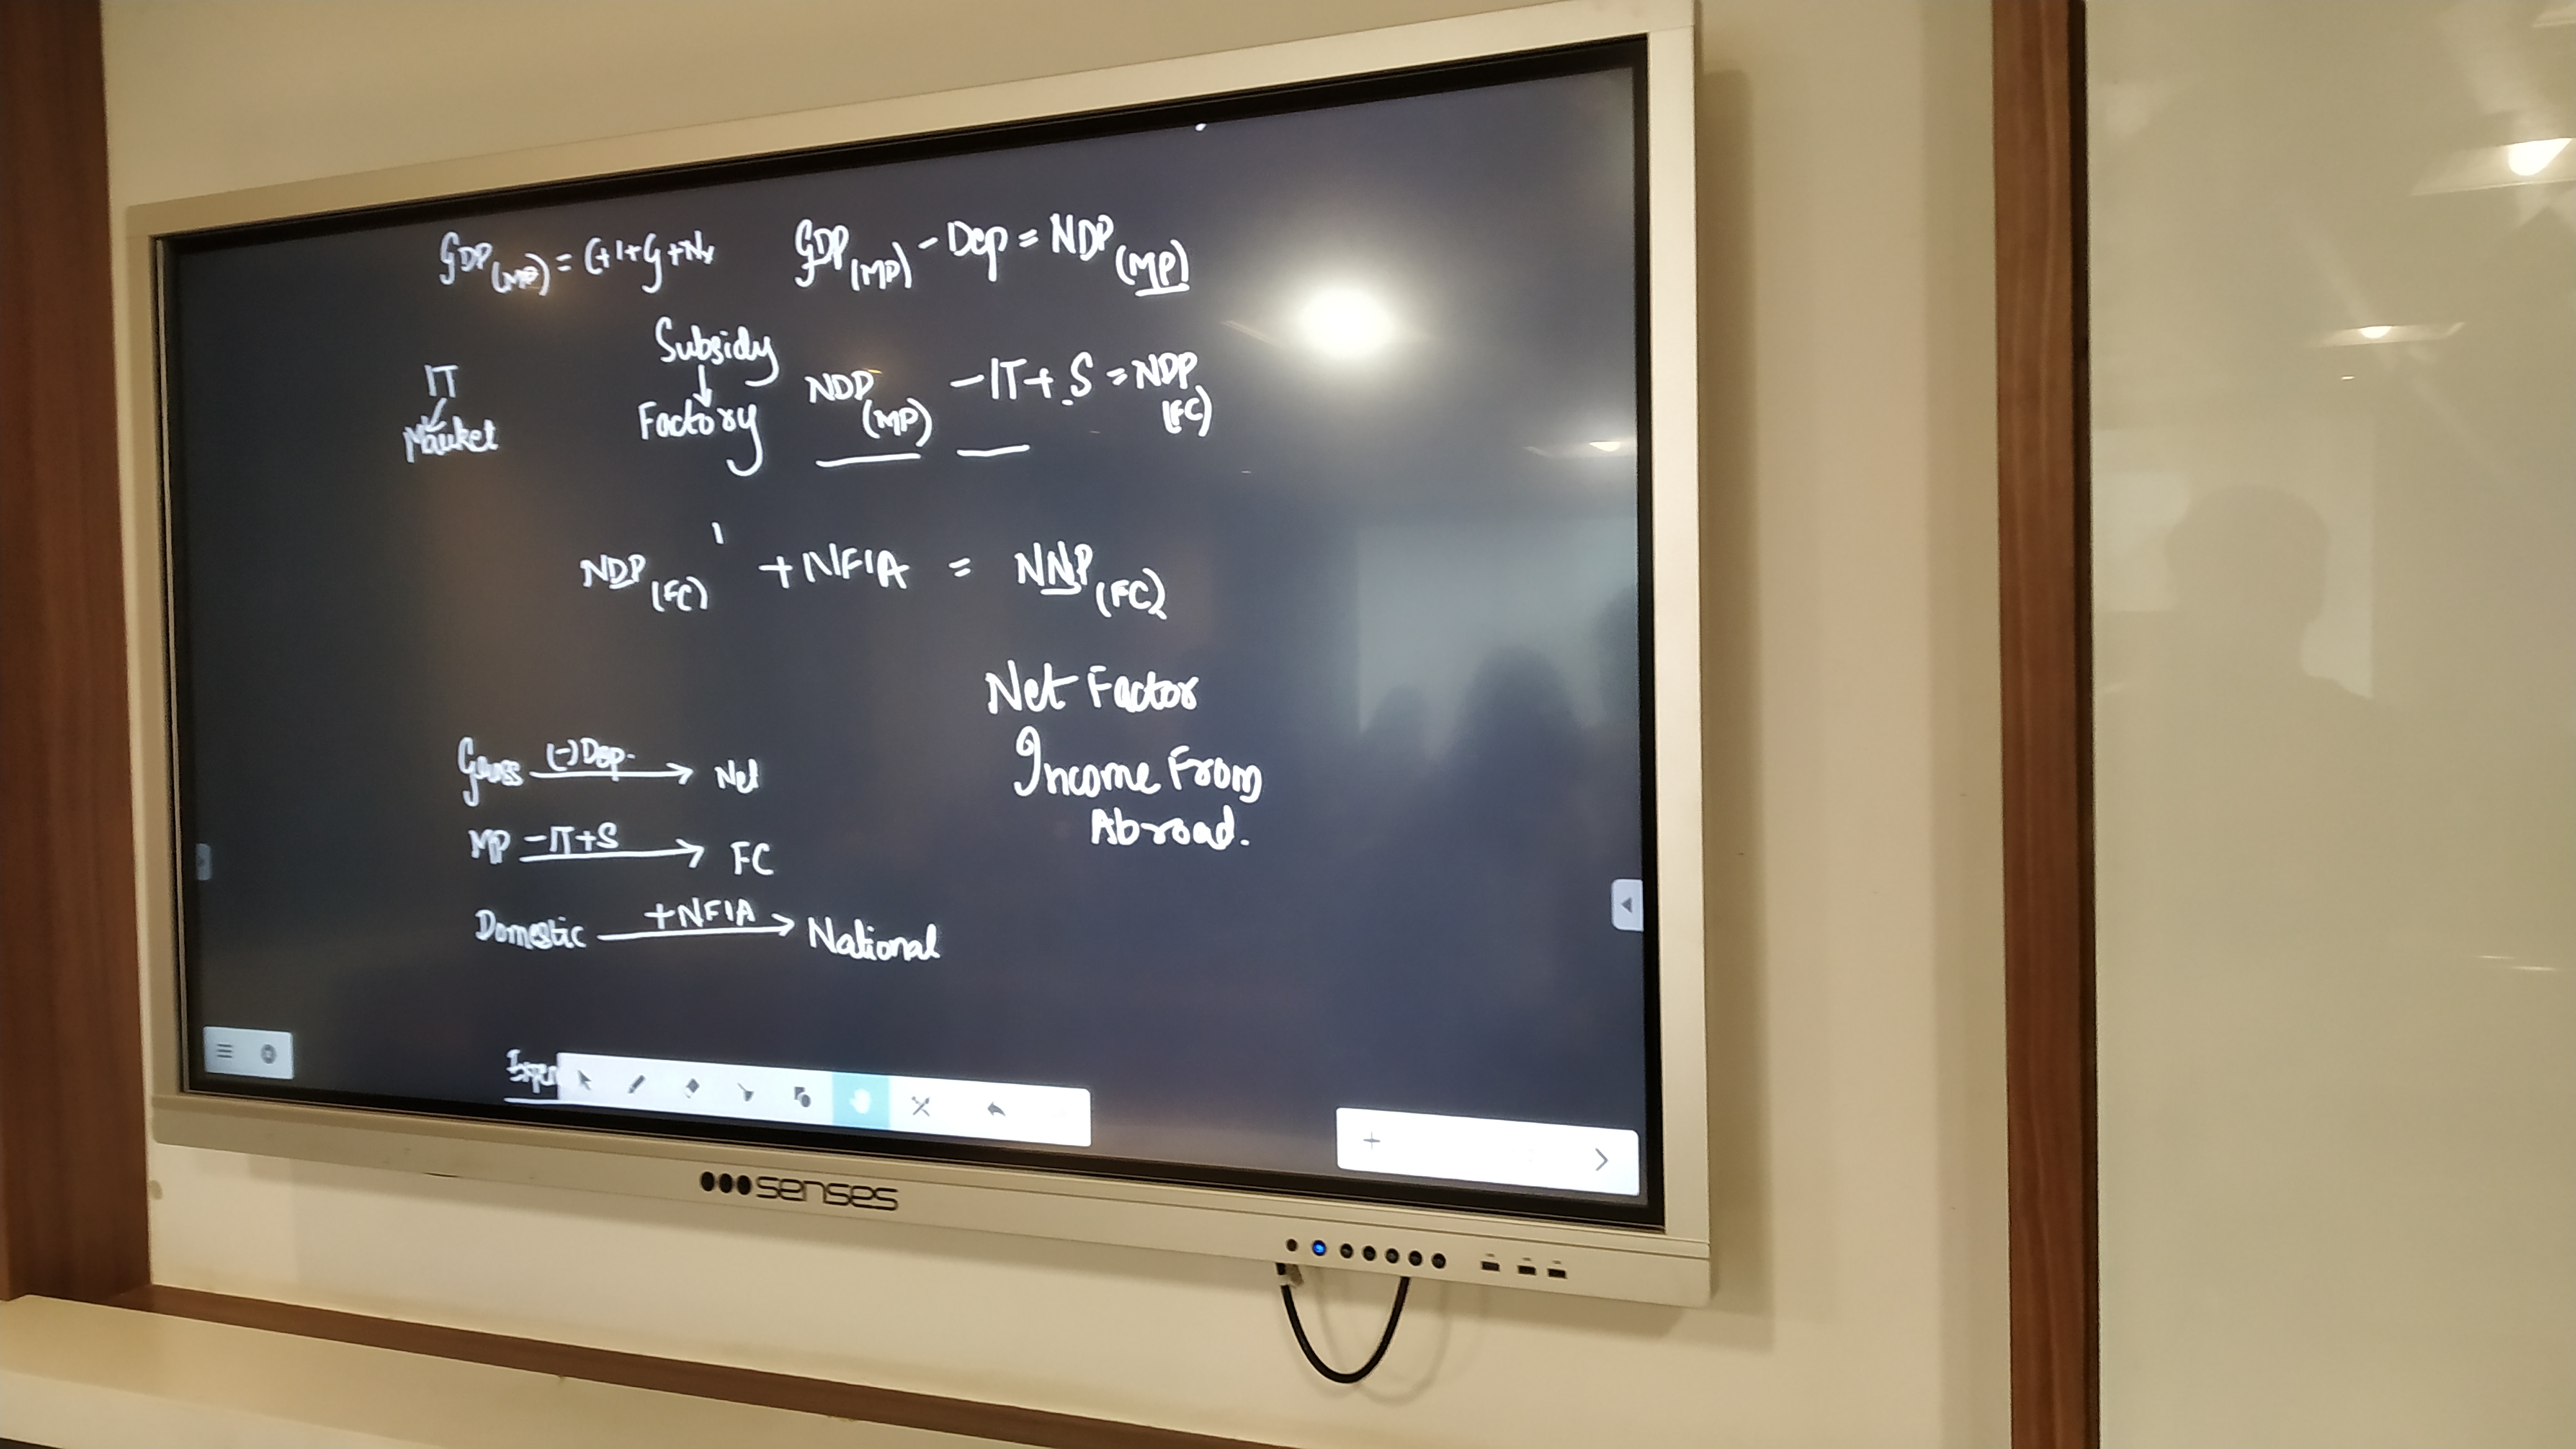 GDP(MP) = C+I+G+Nx
GDP(MP) - Dep = NDP(MP)
IT
Market
Subsidy
Factory
NDP(MP) -IT+S = NDP(FC)
NDP(FC) +NFIA = NNP(FC)
Net Factor
Income From
Abroad.
Gross (-)Dep. → Net
MP -IT+S → FC
Domestic +NFIA → National
senses